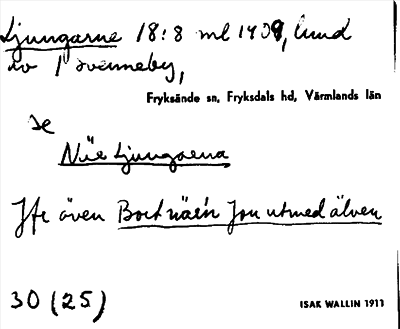 Ljungarne 18:8 ml 1909, lund
av 1 Svenneby,
Fryksände sn, Fryksdals hd, Värmlands län
se
Näe Ljungarna
Jfr även Bortnäen Jon utmed älven
30 (25)
ISAK WALLIN 1911